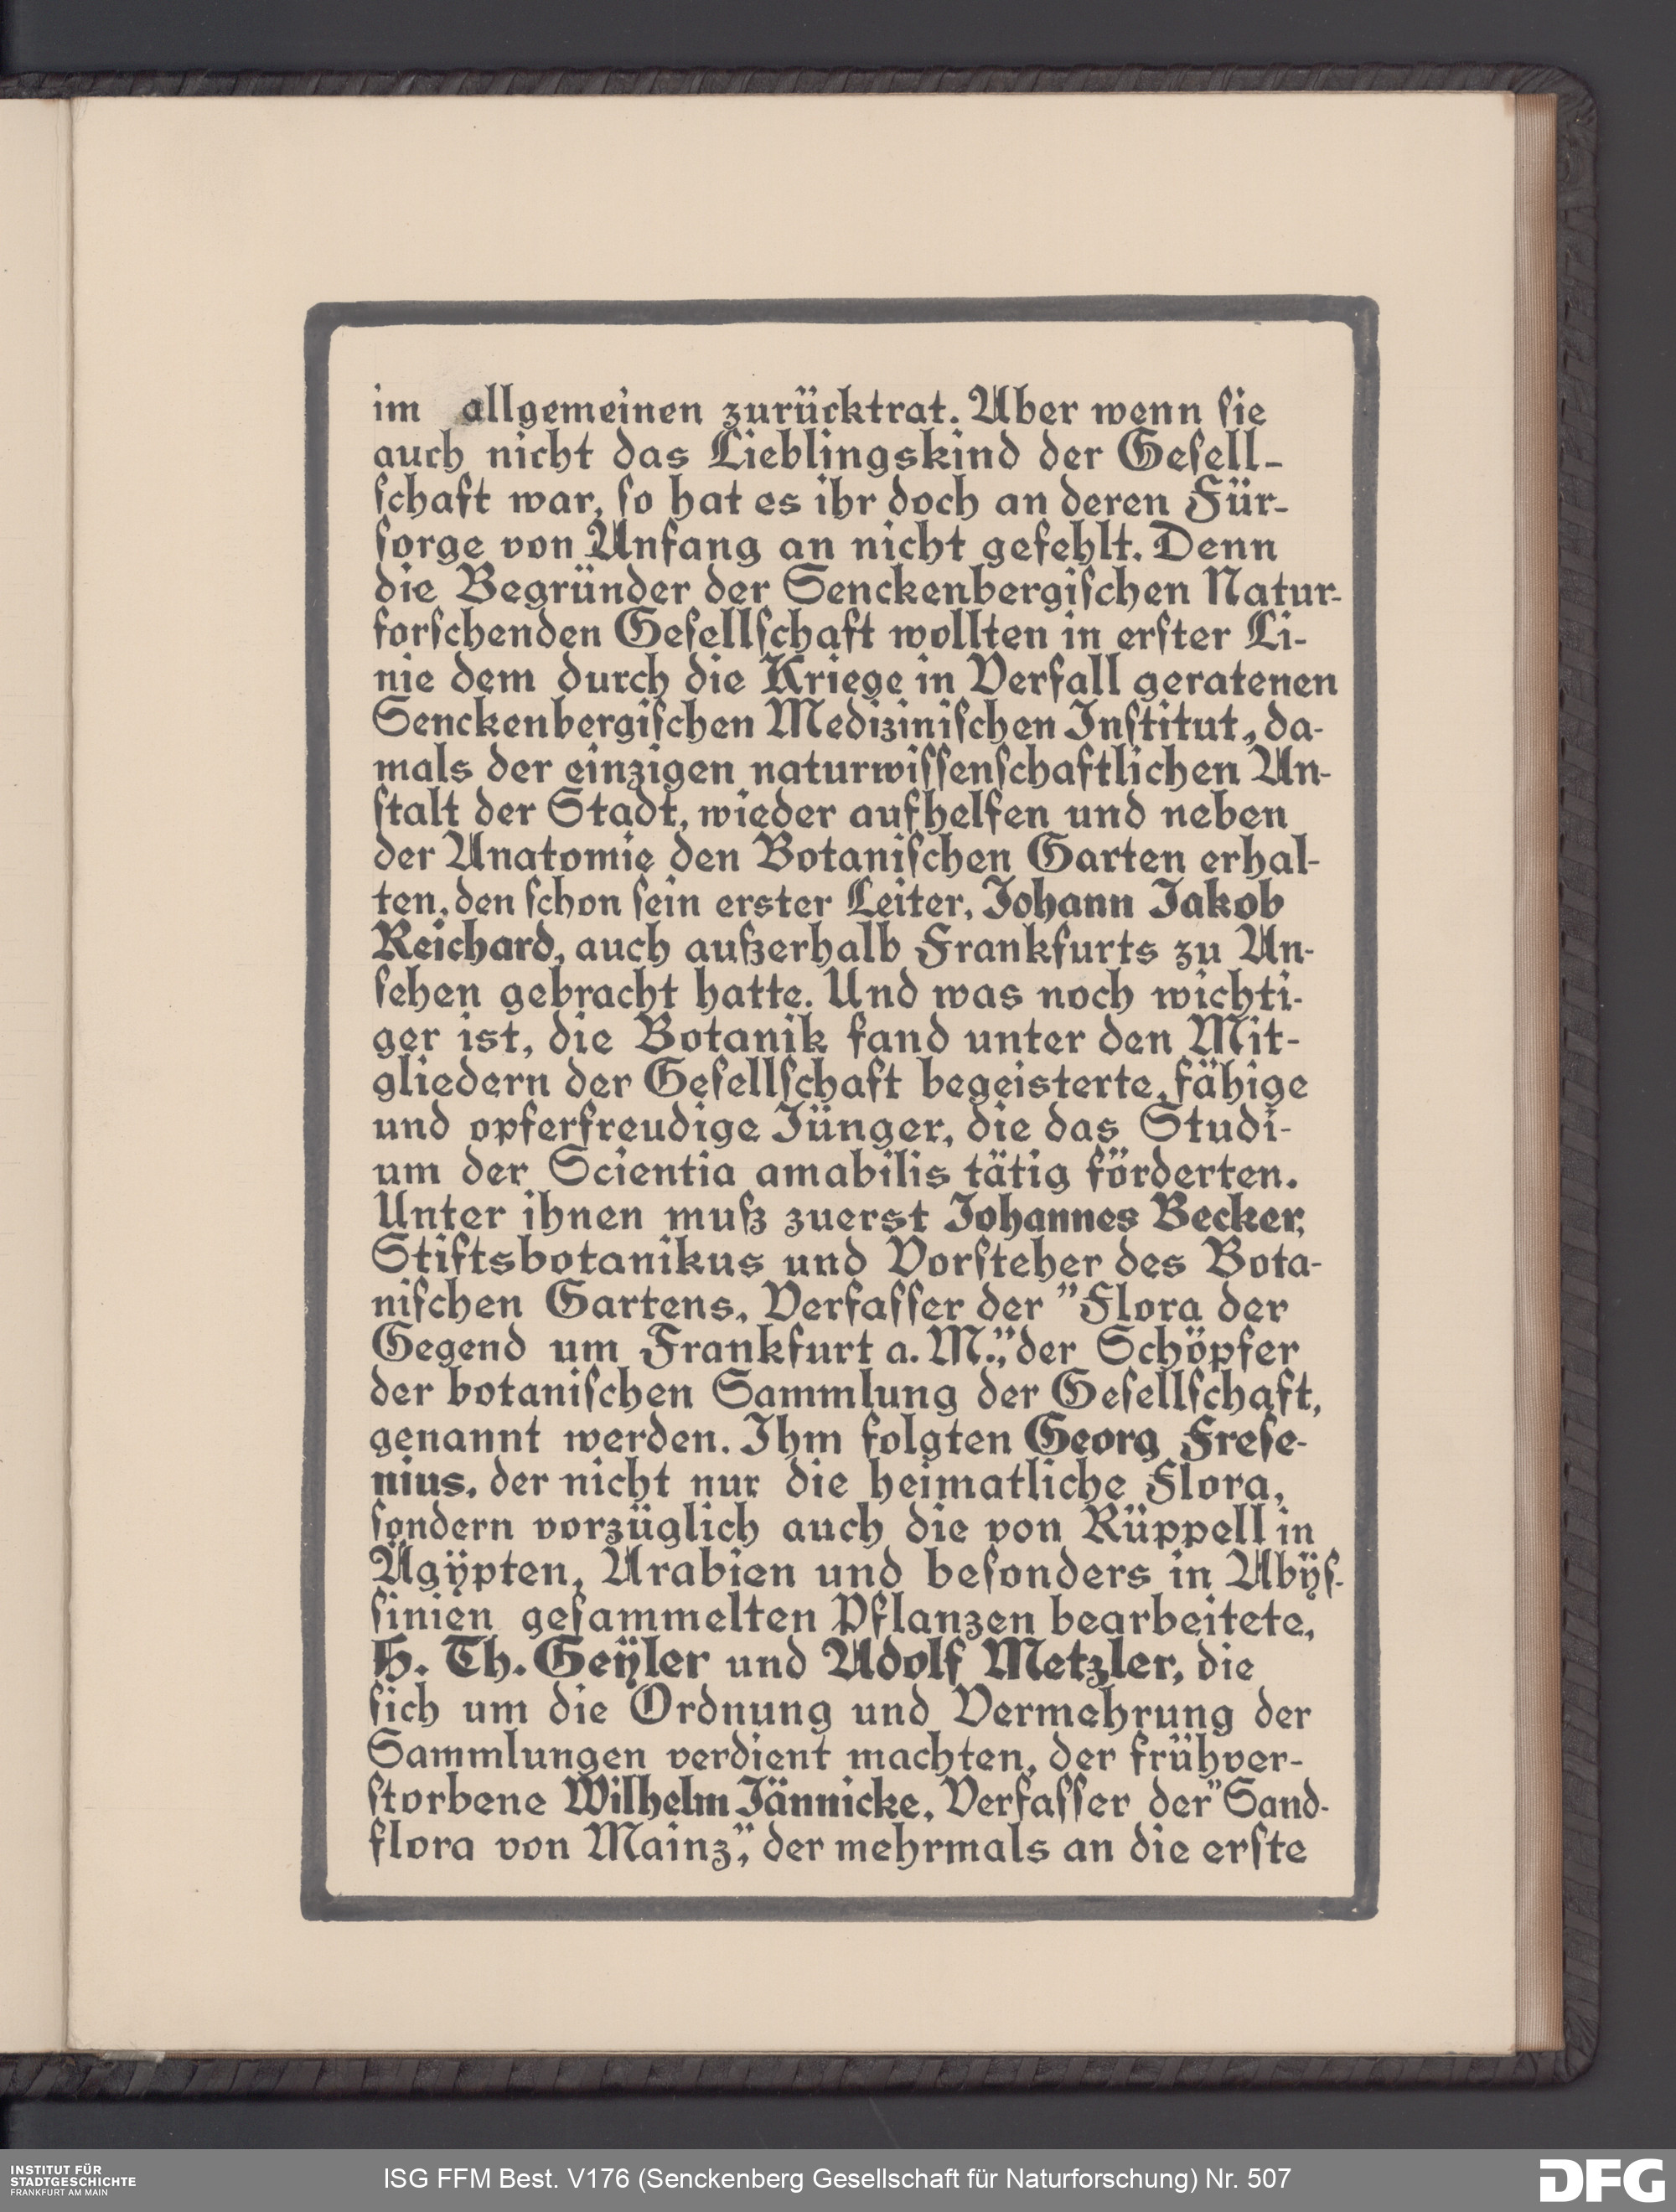 im allgemeinen zurücktrat. Aber wenn ſie
auch nicht das Lieblingskind der Geſell-
ſchaft war, ſo hat es ihr doch an deren Für-
ſorge von Anfang an nicht gefehlt. Denn
die Begründer der Senckenbergiſchen Natur-
forſchenden Geſellſchaft wollten in erſter Li-
nie dem durch die Kriege in Verfall geratenen
Senckenbergiſchen Mediziniſchen Inſtitut, da-
mals der einzigen naturwiſſenſchaftlichen An-
ſtalt der Stadt, wieder aufhelfen und neben
der Anatomie den Botaniſchen Garten erhal-
ten, den ſchon ſein erster Leiter, Johann Jakob
Reichard, auch außerhalb Frankfurts zu An-
ſehen gebracht hatte. Und was noch wichti-
ger ist, die Botanik fand unter den Mit-
gliedern der Geſellſchaft begeisterte, fähige
und opferfreudige Jünger, die das Studi-
um der Scientia amabilis tätig förderten.
Unter ihnen muß zuerst Johannes Becker,
Stiftsbotanikus und Vorſteher des Bota-
niſchen Gartens, Verfaſſer der "Flora der
Gegend um Frankfurt a. M.", der Schöpfer
der botaniſchen Sammlung der Geſellſchaft,
genannt werden. Ihm folgten Georg Freſe-
nius, der nicht nur die heimatliche Flora,
ſondern vorzüglich auch die von Rüppell in
Ägÿpten, Arabien und beſonders in Abÿſ-
ſinien geſammelten Pflanzen bearbeitete,
H. Th. Geÿler und Adolf Metzler, die
ſich um die Ordnung und Vermehrung der
Sammlungen verdient machten, der frühver-
ſtorbene Wilhelm Jännicke, Verfaſſer der "Sand-
flora von Mainz", der mehrmals an die erſte
INSTITUT FÜR
STADTGESCHICHTE
FRANKFURT AM MAIN
ISG FFM Best. V176 (Senckenberg Gesellschaft für Naturforschung) Nr. 507
DFG